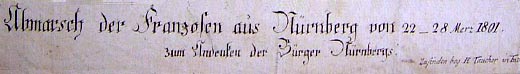 Abmarsch der Franzosen aus Nürnberg von 22–28 Merz 1801.
zum Andenken der Bürger Nürnbergs.
Zufinden bey